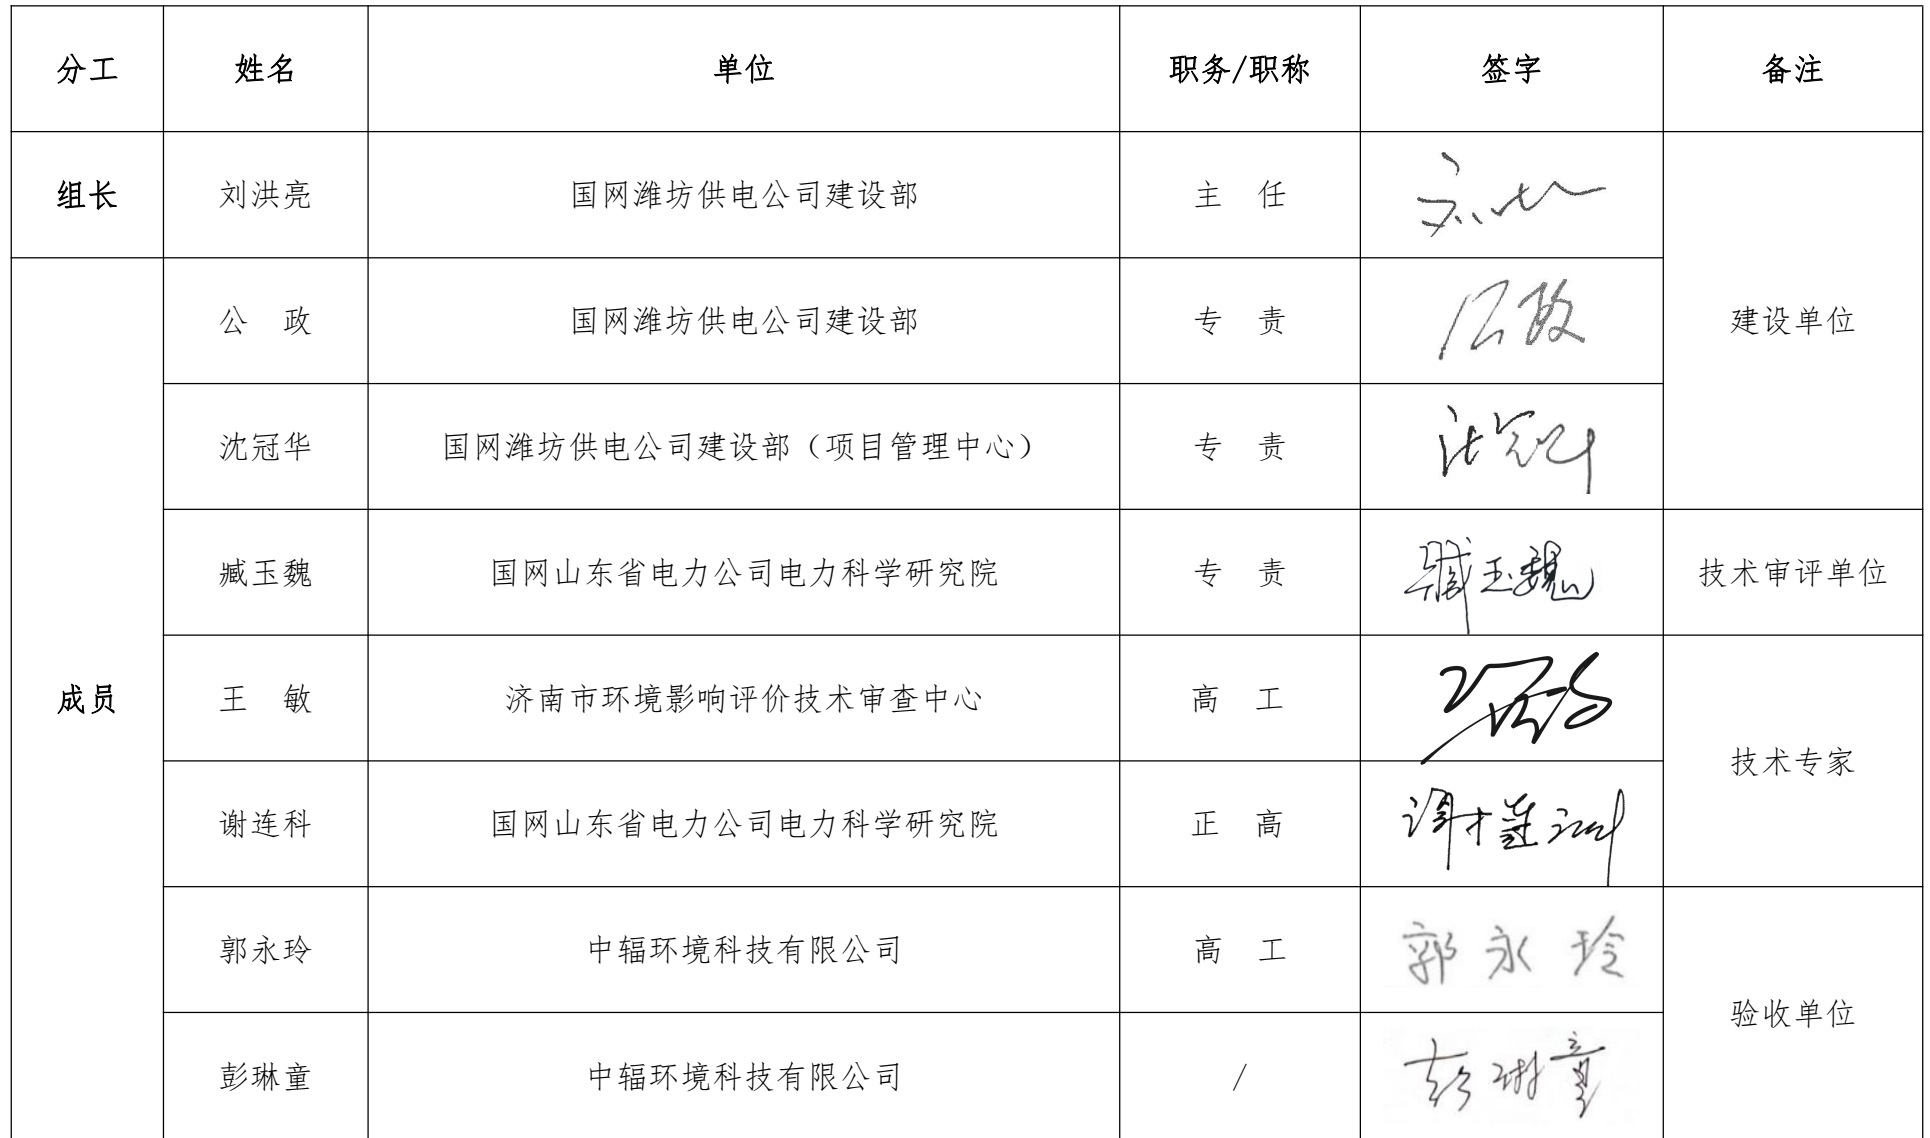 分工 姓名 单位 职务/职称 签字 备注
组长 刘洪亮 国网潍坊供电公司建设部 主 任
公 政 国网潍坊供电公司建设部 专 责 公政 建设单位
沈冠华 国网潍坊供电公司建设部（项目管理中心） 专 责 沈冠华
臧玉魏 国网山东省电力公司电力科学研究院 专 责 臧玉魏 技术审评单位
成员 王 敏 济南市环境影响评价技术审查中心 高 工 王敏
技术专家
谢连科 国网山东省电力公司电力科学研究院 正 高 谢连科
郭永玲 中辐环境科技有限公司 高 工 郭永玲
验收单位
彭琳童 中辐环境科技有限公司 / 彭琳童